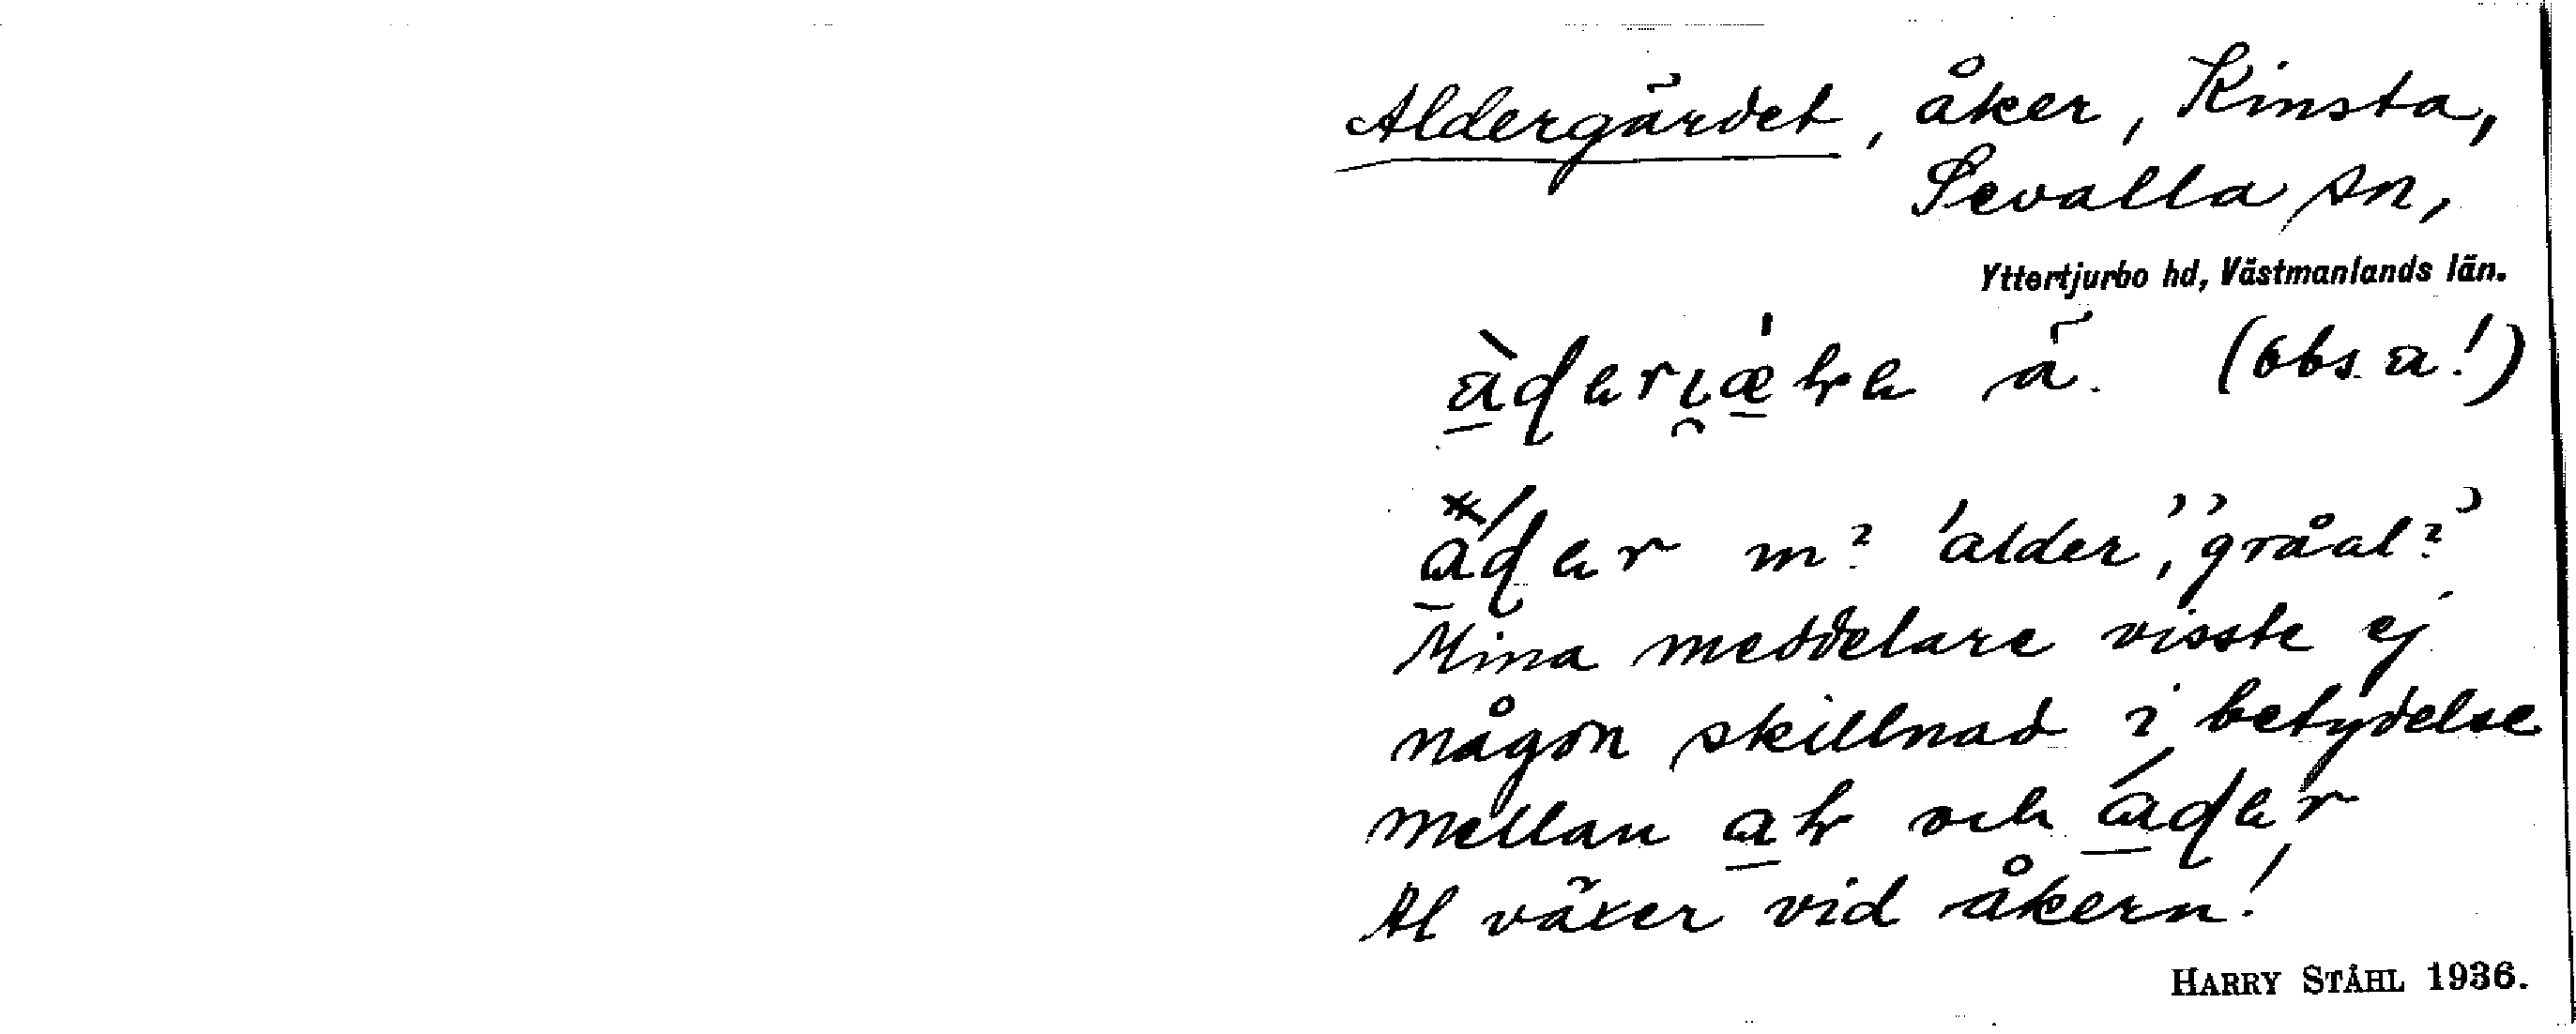 Aldergärdet, åker, Kinsta,
Sevalla sn,
Yttertjurbo hd, Västmanlands län.
ä. (obs a!)
m? 'alder', 'gråal'?
Mina meddelare visste ej
någon skillnad i betydelse
mellan och
Al växer vid åkern!
HARRY STÅHL 1936.